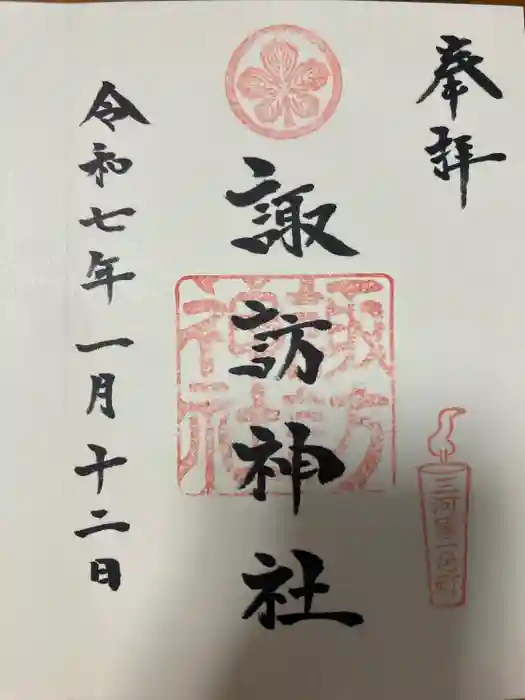 奉拝
諏訪神社
諏訪
神社
三河国一色町
令和七年一月十二日